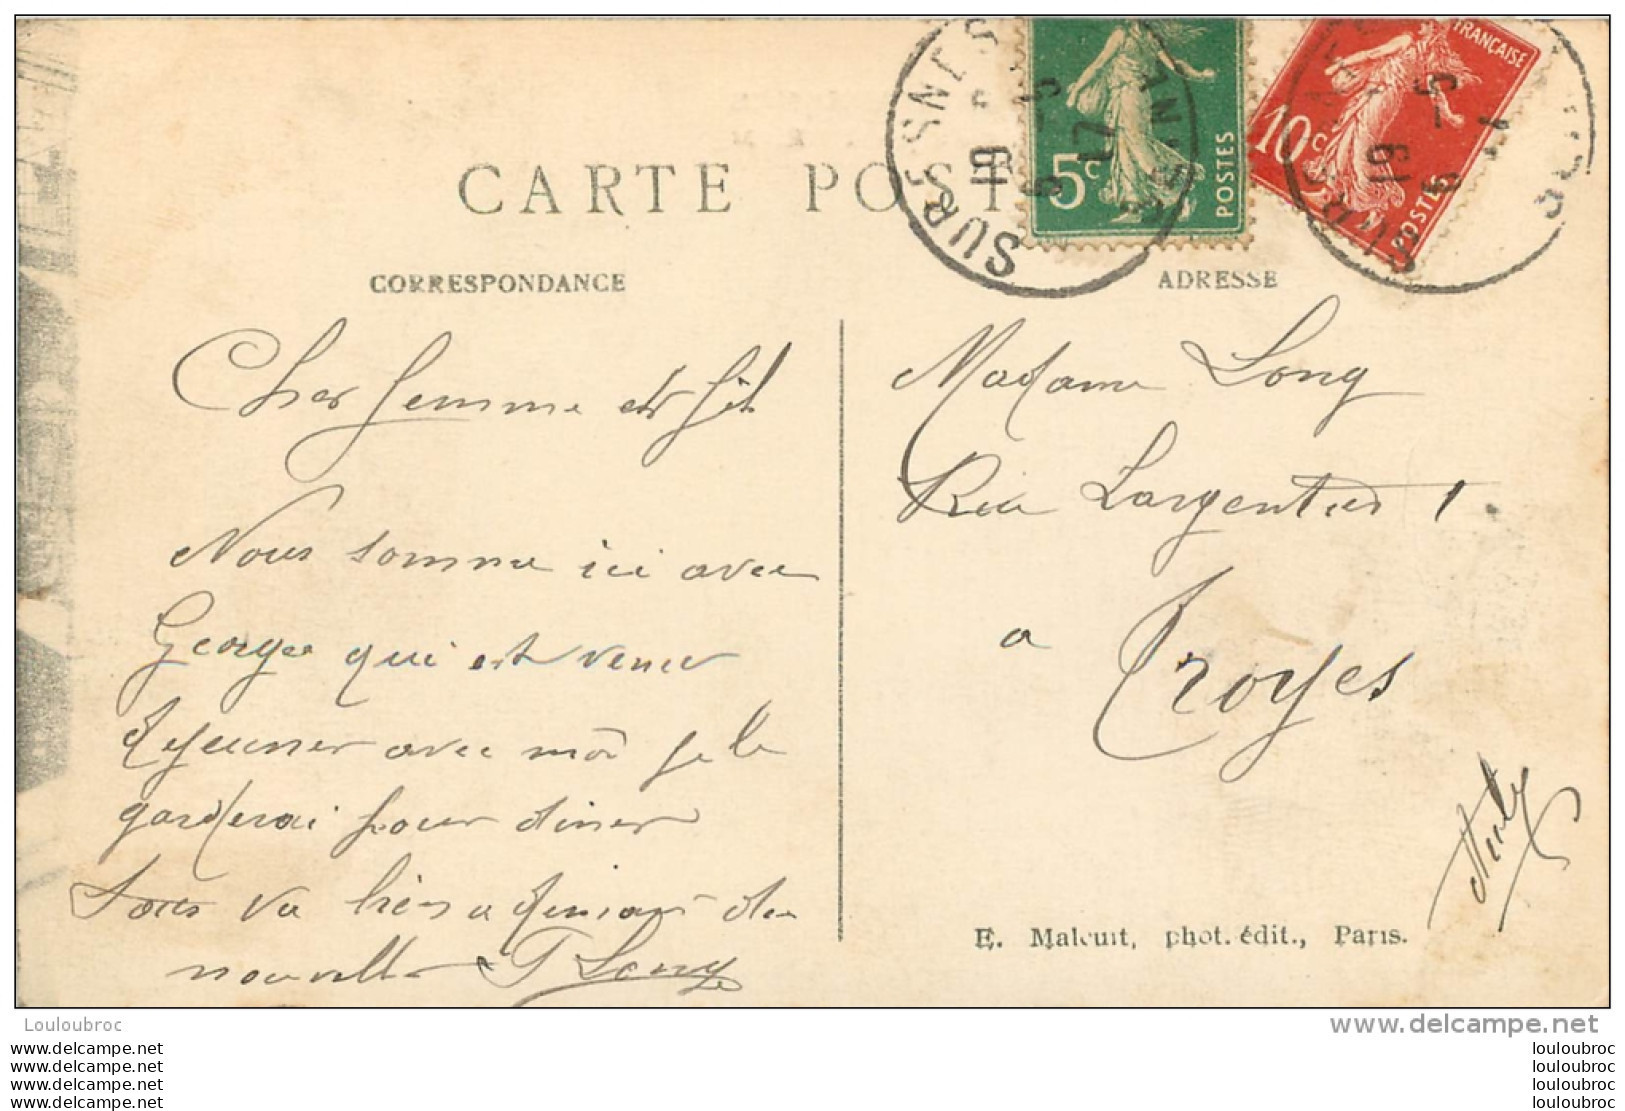 CARTE POST
SURESNES
5c
POSTES
FRANÇAISE
10c
POSTES
CORRESPONDANCE
ADRESSE
Cher femme et fil
Nous somme ici avec
George qui est venu
dejeuner avec moi je le
garderai pour diner
tous va bien a demain de
nouvelle F Long
Madame Long
Rue Largentier 1
a
Troyes
E. Malcuit, phot. édit., Paris.
Louloubroc
www.delcampe.net
www.delcampe.net
www.delcampe.net
www.delcampe.net
www.delcampe.net
louloubroc
louloubroc
louloubroc
louloubroc